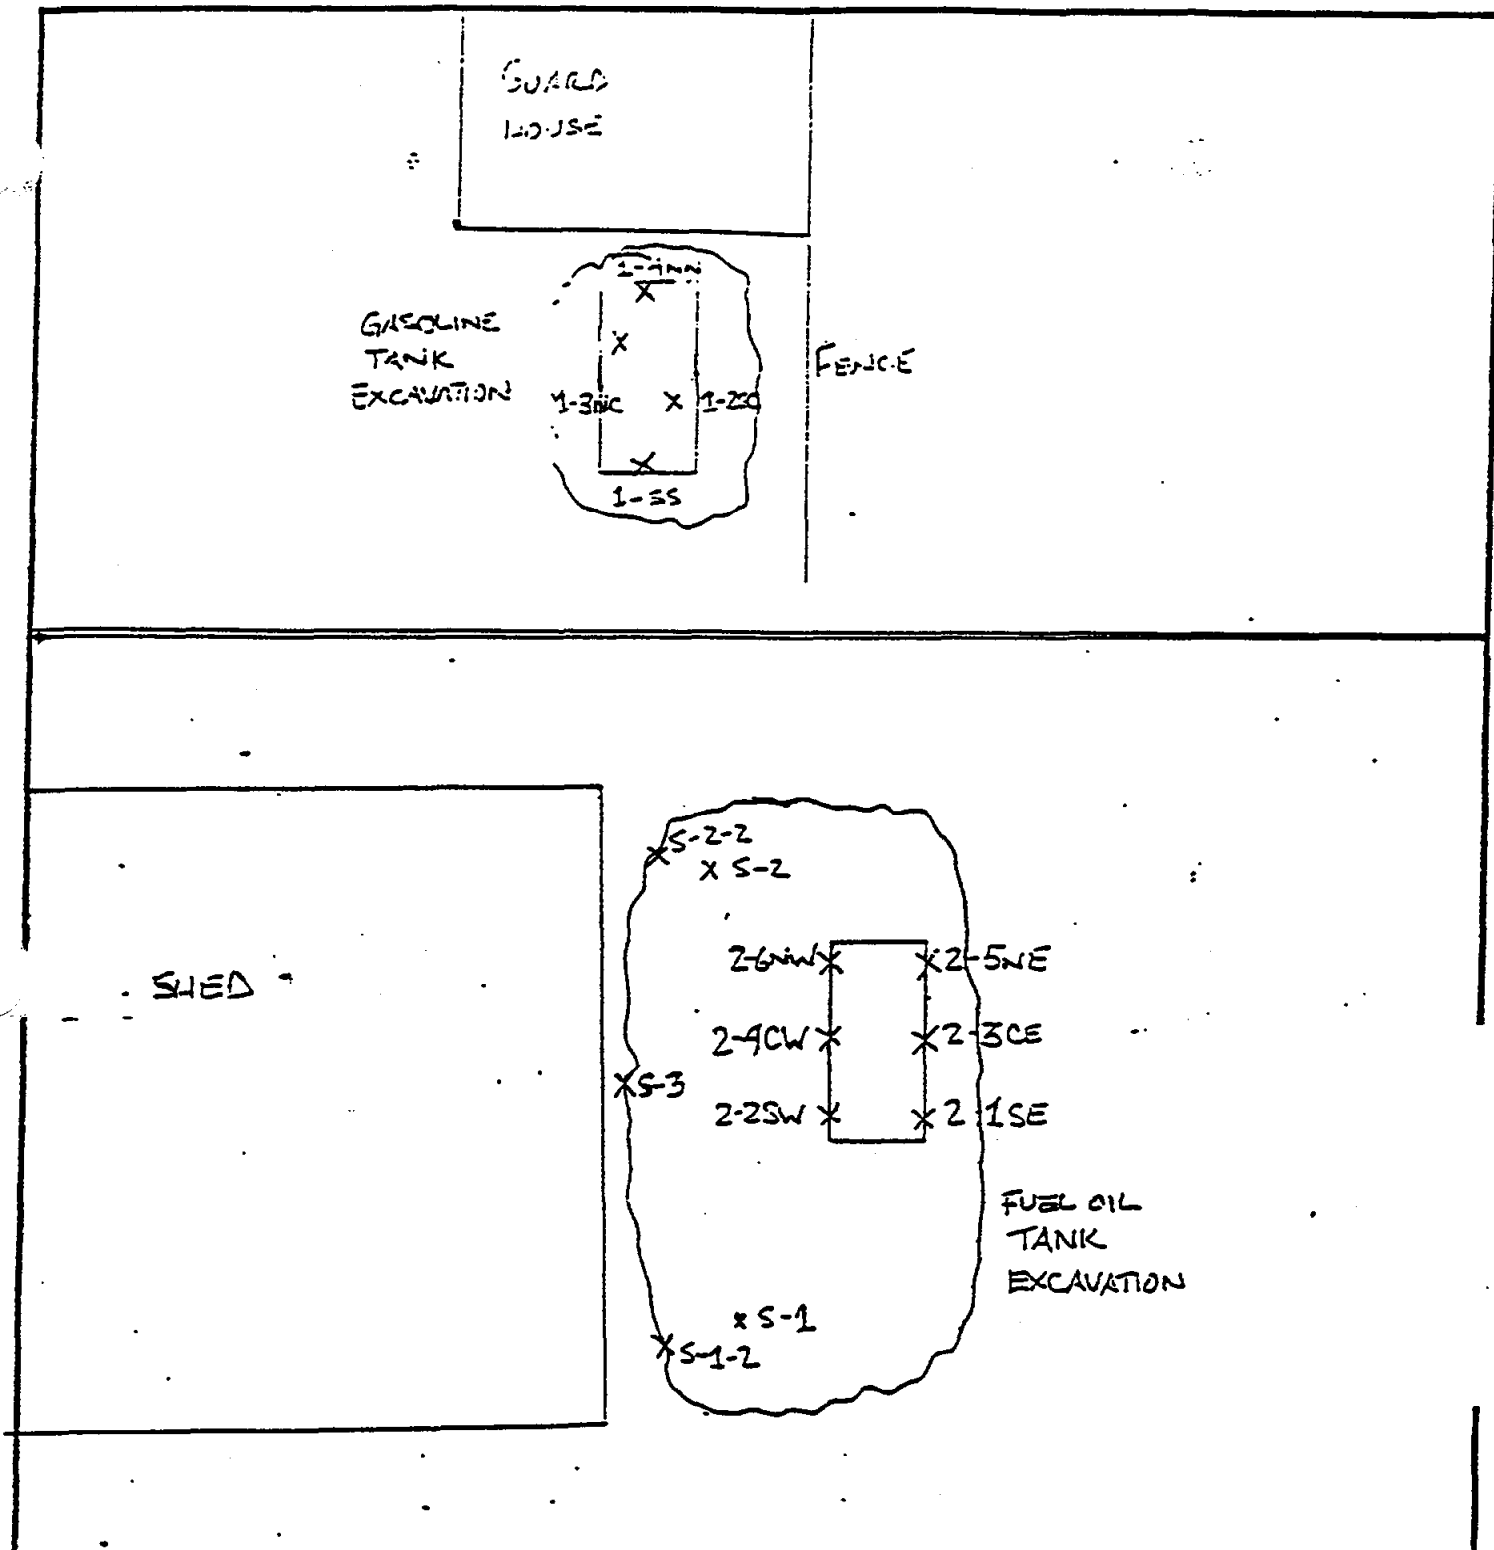 GUARD
HOUSE
GASOLINE
TANK
EXCAVATION
FENCE
1-SS
S-2-2
S-2
2-6NW
2-5NE
SHED
2-4CW
2-3CE
S-3
2-2SW
2-1SE
FUEL OIL
TANK
EXCAVATION
S-1
S-1-2